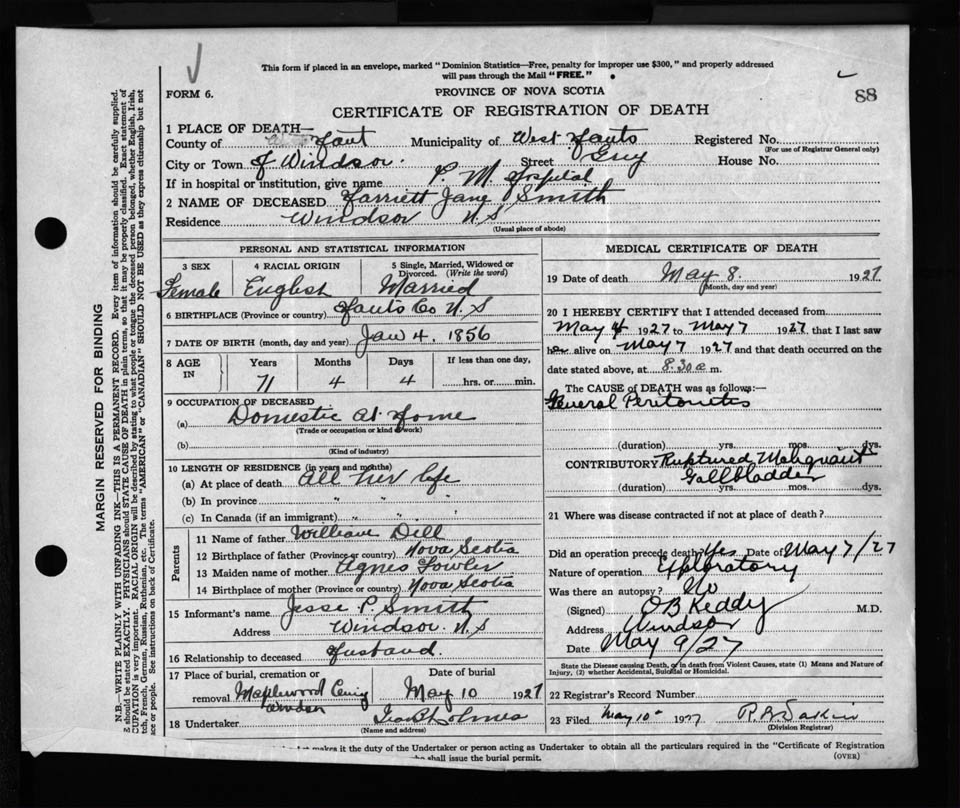 This form if placed in an envelope, marked "Dominion Statistics—Free, penalty for improper use $300," and properly addressed
will pass through the Mail "FREE."
FORM 6.
PROVINCE OF NOVA SCOTIA
88
CERTIFICATE OF REGISTRATION OF DEATH
1 PLACE OF DEATH—
County of Hant Municipality of West Hants Registered No.
(For use of Registrar General only)
City or Town of Windsor. Street Grey House No.
If in hospital or institution, give name P. M. Hospital
2 NAME OF DECEASED Harriett Jane Smith
Residence Windsor N.S
(Usual place of abode)
PERSONAL AND STATISTICAL INFORMATION
3 SEX 4 RACIAL ORIGIN 5 Single, Married, Widowed or
Divorced. (Write the word)
Female English Married
6 BIRTHPLACE (Province or country) Hants Co N.S
7 DATE OF BIRTH (month, day and year) Jan 4, 1856
8 AGE IN Years Months Days If less than one day,
71 4 4 hrs. or min.
9 OCCUPATION OF DECEASED
(a) Domestic at Home
(Trade or occupation or kind of work)
(b)
(Kind of industry)
10 LENGTH OF RESIDENCE (in years and months)
(a) At place of death All her life
(b) In province " " "
(c) In Canada (if an immigrant) " " "
Parents
11 Name of father William Dill
12 Birthplace of father (Province or country) Nova Scotia
13 Maiden name of mother Agnes Fowler
14 Birthplace of mother (Province or country) Nova Scotia
15 Informant's name Jesse P. Smith
Address Windsor. N.S
16 Relationship to deceased Husband.
17 Place of burial, cremation or Date of burial
removal Maplewood Cemy May 10 1927
Windsor
18 Undertaker Holmes
(Name and address)
MEDICAL CERTIFICATE OF DEATH
19 Date of death May 8. 1927
(Month, day and year)
20 I HEREBY CERTIFY that I attended deceased from
May 4 1927 to May 7 1927 that I last saw
her alive on May 7 1927 and that death occurred on the
date stated above, at 8.30 a m.
The CAUSE OF DEATH was as follows:—
General Peritonitis
(duration) yrs. mos. dys.
CONTRIBUTORY Ruptured Malignant
Gallbladder
(duration) yrs. mos. dys.
21 Where was disease contracted if not at place of death?
Did an operation precede death? Yes Date of May 7/27
Nature of operation Exploratory
Was there an autopsy? No
(Signed) O B Keddy M.D.
Address Windsor
Date May 9/27
State the Disease causing Death, or in death from Violent Causes, state (1) Means and Nature of
Injury, (2) whether Accidental, Suicidal or Homicidal.
22 Registrar's Record Number
23 Filed May 10 1927
(Division Registrar)
it makes it the duty of the Undertaker or person acting as Undertaker to obtain all the particulars required in the "Certificate of Registration
shall issue the burial permit.
(OVER)
MARGIN RESERVED FOR BINDING
N.B.—WRITE PLAINLY WITH UNFADING INK—THIS IS A PERMANENT RECORD. Every item of information should be carefully supplied.
should be stated EXACTLY. PHYSICIANS should STATE CAUSE OF DEATH in plain terms, so that it may be properly classified. Exact statement of
CUPATION is very important. RACIAL ORIGIN will be described by stating to what people or tongue the deceased person belonged, whether English, Irish,
tch, French, German, Russian, Ruthenian, etc. The terms "AMERICAN" or "CANADIAN" SHOULD NOT BE USED as they express citizenship but not
ce or people. See instructions on back of Certificate.